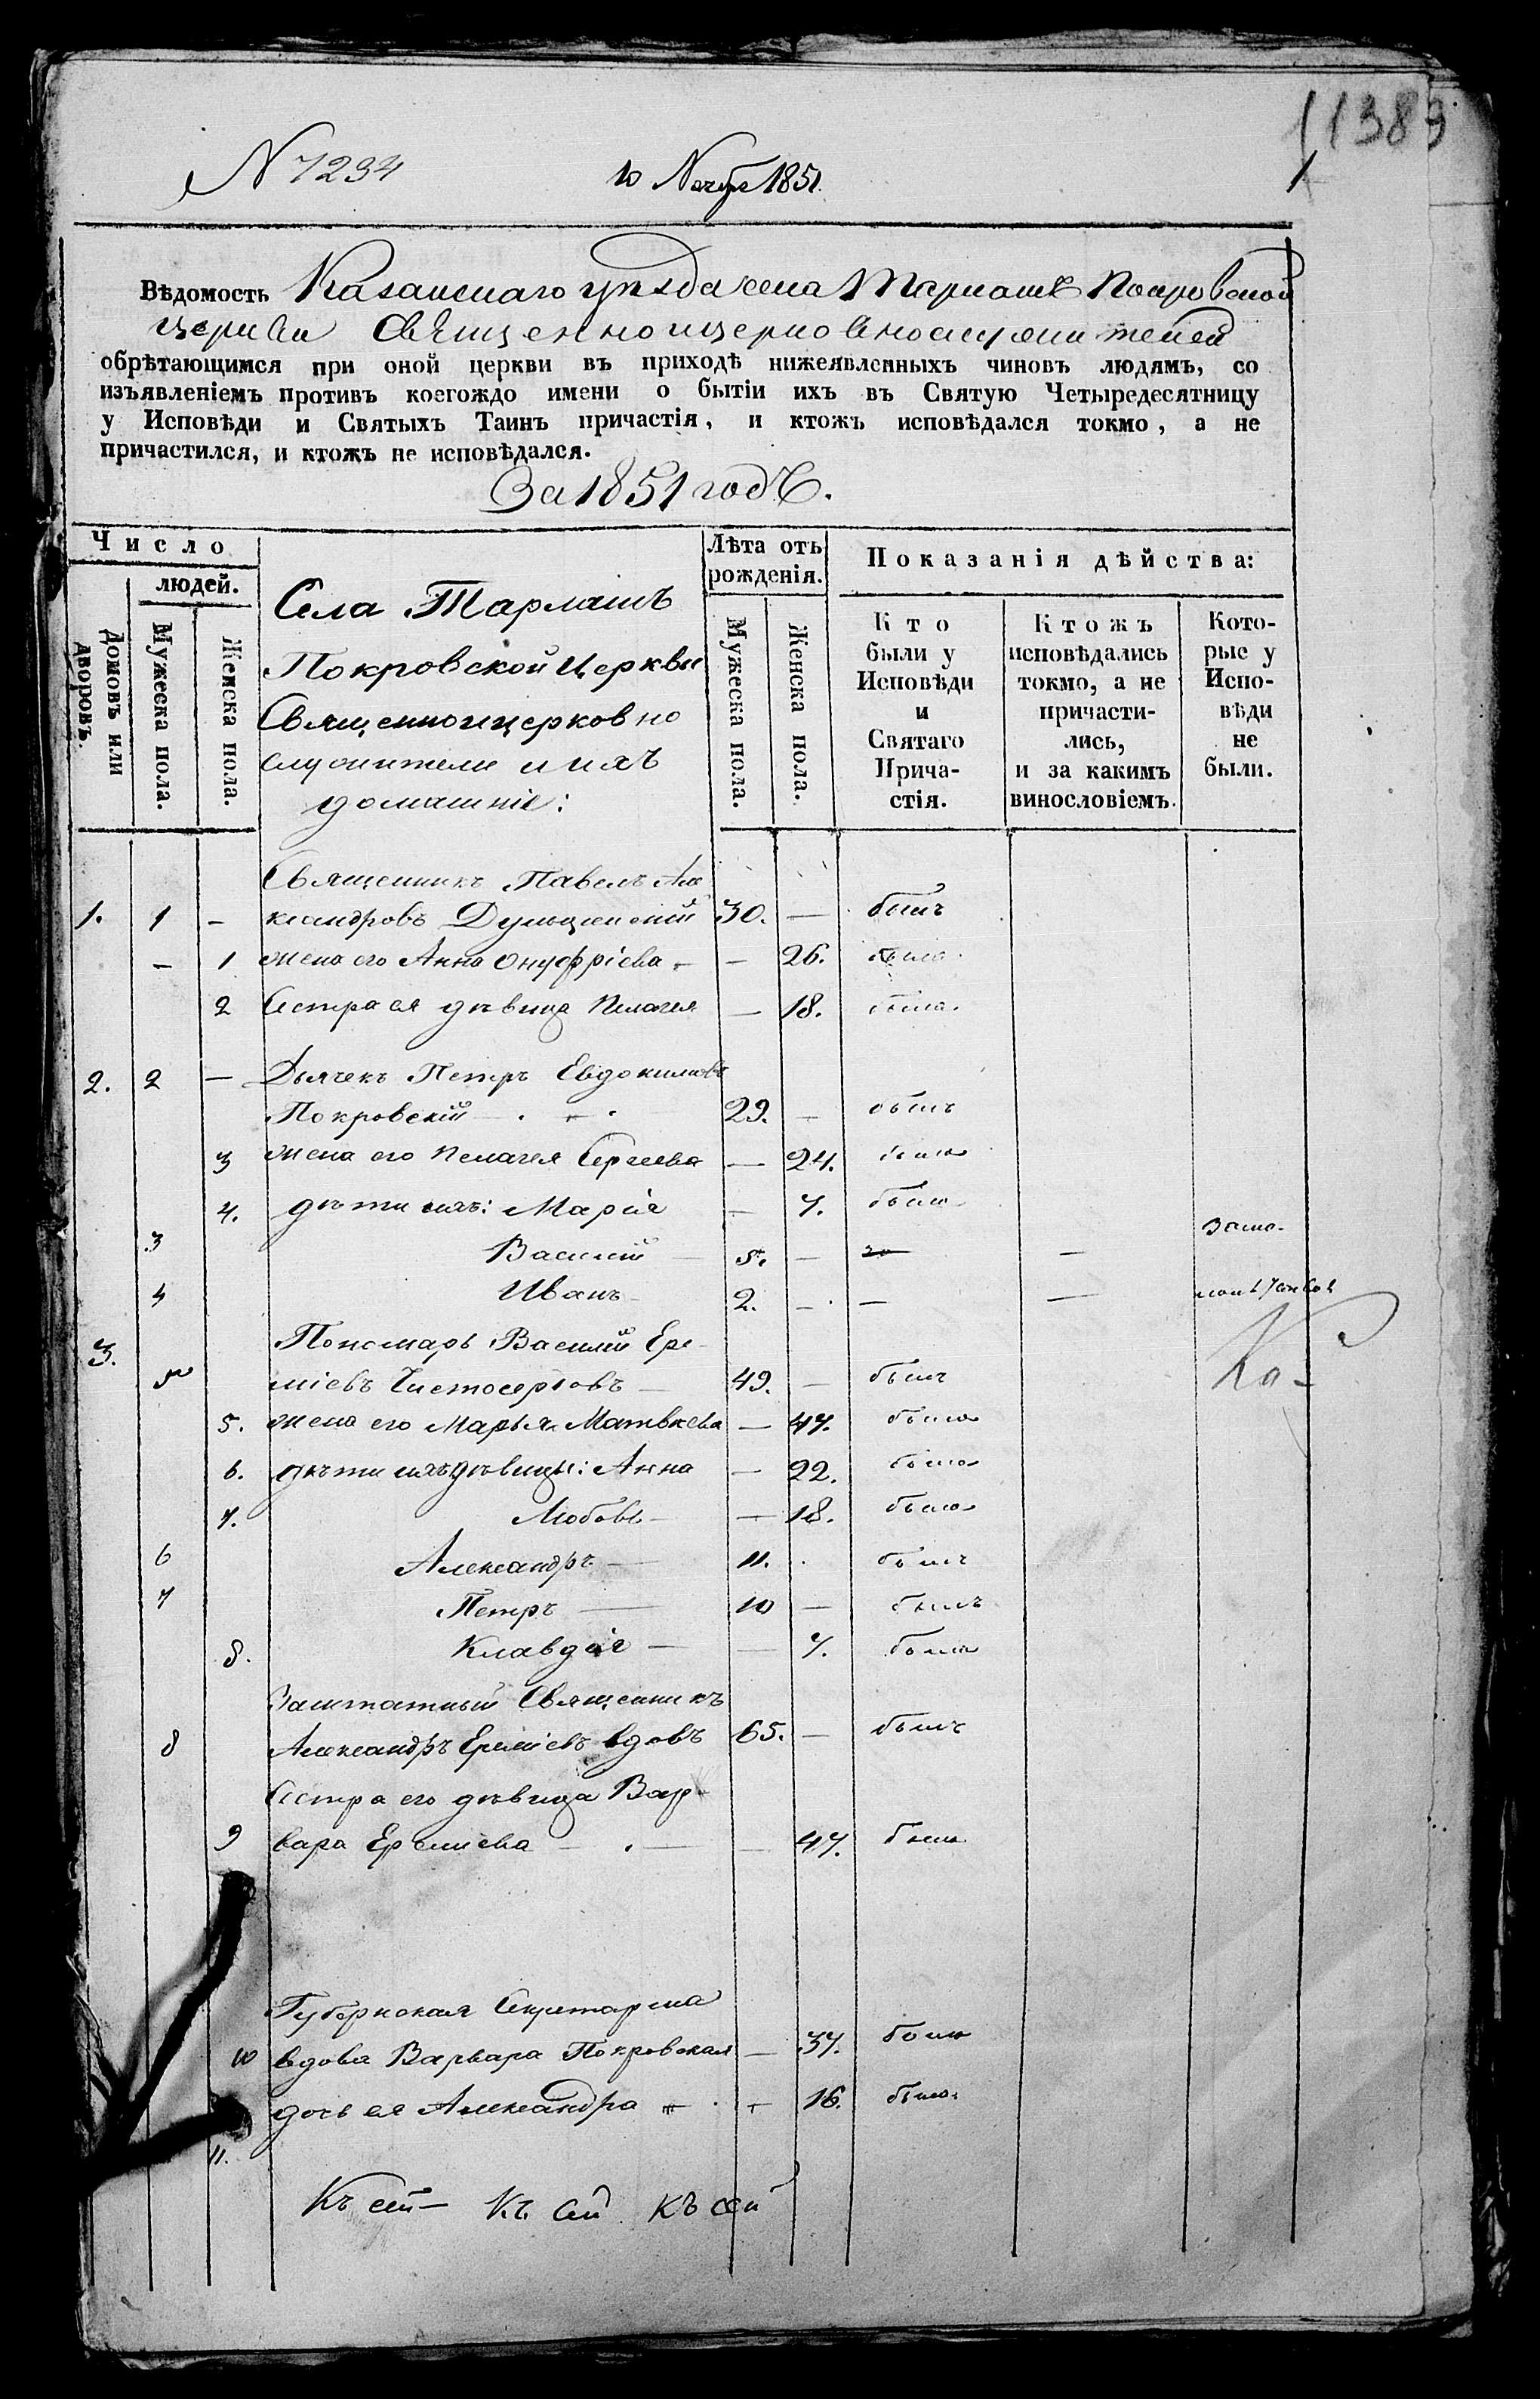 11383
1
N 7234
10 Ноябр 1851
Вѣдомость Казанскаго уѣзда села Тарлашъ Покровской
церкви священноицерковнослужителей
обрѣтающимся при оной церкви въ приходѣ нижеявленныхъ чиновъ людямъ, со
изъявленіемъ противъ коегождо имени о бытіи ихъ въ Святую Четыредесятницу
у Исповѣди и Святыхъ Таинъ причастія, и ктожъ исповѣдался токмо, а не
причастился, и ктожъ не исповѣдался.
За 1851 годъ.
Число
людей.
Домовъ или дворовъ.
Мужеска пола.
Женска пола.
Села Тарлашъ
Покровской церкви
Священноицерковно
служители и ихъ
домашніе:
Лѣта отъ
рожденія.
Мужеска пола.
Женска пола.
Показанія дѣйства:
Кто
были у
Исповѣди
и
Святаго
Прича-
стія.
Ктожъ
исповѣдались
токмо, а не
причасти-
лись,
и за какимъ
винословіемъ.
Кото-
рые у
Испо-
вѣди
не
были.
Священникъ Павелъ Але
1. 1 – ксандровъ 30. — былъ
– 1 жена его Анна Онуфріева – – 26. была
2 Сестра ея дѣвица Пелагея — 18. была.
2. 2 — Дьячекъ Петръ Евдокимовъ
Покровскій — 29. – былъ
3 жена его Пелагея Сергеева — 24. была
4. дѣти ихъ: Марія — 7. была
3 Василій — 5. — — За ма-
4 Иванъ 2. – — — лолѣтствомъ
3. Пономарь Василій Ере-
5 міевъ Чистосердовъ — 49. — былъ
5. жена его Марья Матвѣева — 47. была
6. дѣти ихъ дѣвицы: Анна — 22. была
7. Любовь — — 18. была
6 Александръ — 11. . былъ
7 Петръ — 10 — былъ
8. Клавдія — — 7. была
Заштатный Священникъ
8 Александръ Ереміевъ вдовъ 65. — былъ
Сестра его дѣвица Вар-
9 вара Ереміева — — 47. была
Губернская Секретарша
10 вдова Варвара Покровская — 37. была
11. дочь ея Александра – 16. была
Къ сей — Къ сей Къ сей